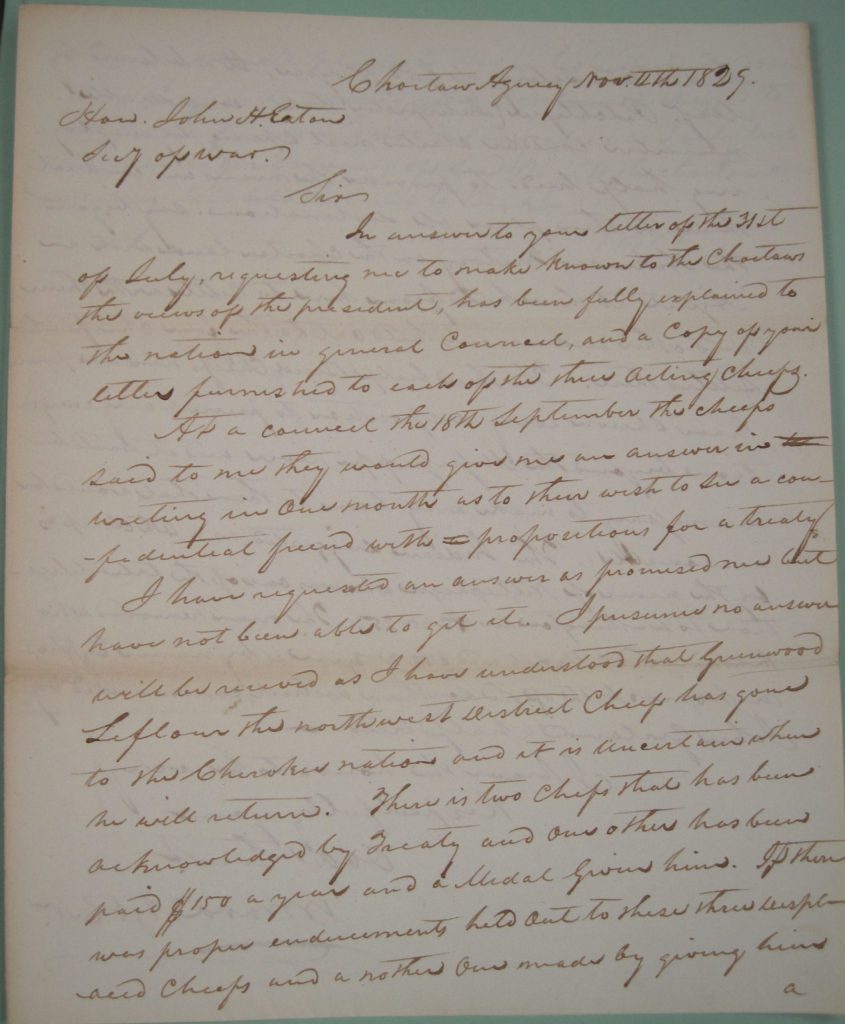 Choctaw Agency Nov. 4th 1829.
Hon. John H. Eaton
Secy of war.
Sir
In answer to your letter of the 31st
of July, requesting me to make known to the Choctaws
the views of the president, has been fully explained to
the nation in general Council, and a Copy of your
letter furnished to each of the three acting Cheefs.
At a council the 18th September the cheefs
said to me they would give me an answer in
wreting in one month as to their wish to see a con-
-fedential friend with propositions for a treaty
I have requested an answer as promised me but
have not been able to get it. I presume no answer
will be receved as I have understood that Greenwood
Leflour the northwest destrect Cheef has gone
to the Cherokee nation and it is uncertain when
he will return. There is two Cheefs that has been
acknowledged by Treaty and one other has been
paid $150 a year and a Medal Given him. If there
was proper enducements held out to these three despl-
aced Cheefs and a nother one made by giveng him
a